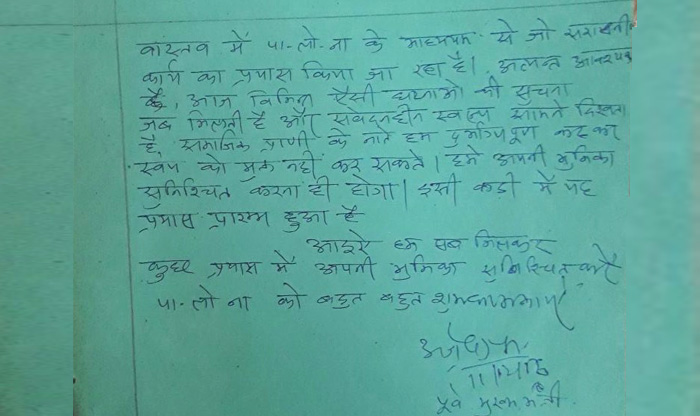 वास्तव में पा-लो-ना के माध्यम से जो सराहनीय
कार्य का प्रयास किया जा रहा है। अत्यन्त आवश्यक
है, आज विभिन्न ऐसी घटनाओं की सुचना
जब मिलती है और संवेदनहीन स्वरूप सामने दिखता
है, समाजिक प्राणी के नाते हम दुर्भाग्यपूर्ण कहकर
स्वयं को मुक्त नहीं कर सकते। हमे अपनी भुमिका
सुनिश्चित करना ही होगा। इसी कड़ी में यह
प्रयास प्रारम्भ हुआ है
आइये हम सब मिलकर
प्रयास में अपनी भुमिका सुनिश्चित करें
पा-लो ना को बहुत बहुत शुभकामनाएं
पूर्व मुख्यमंत्री